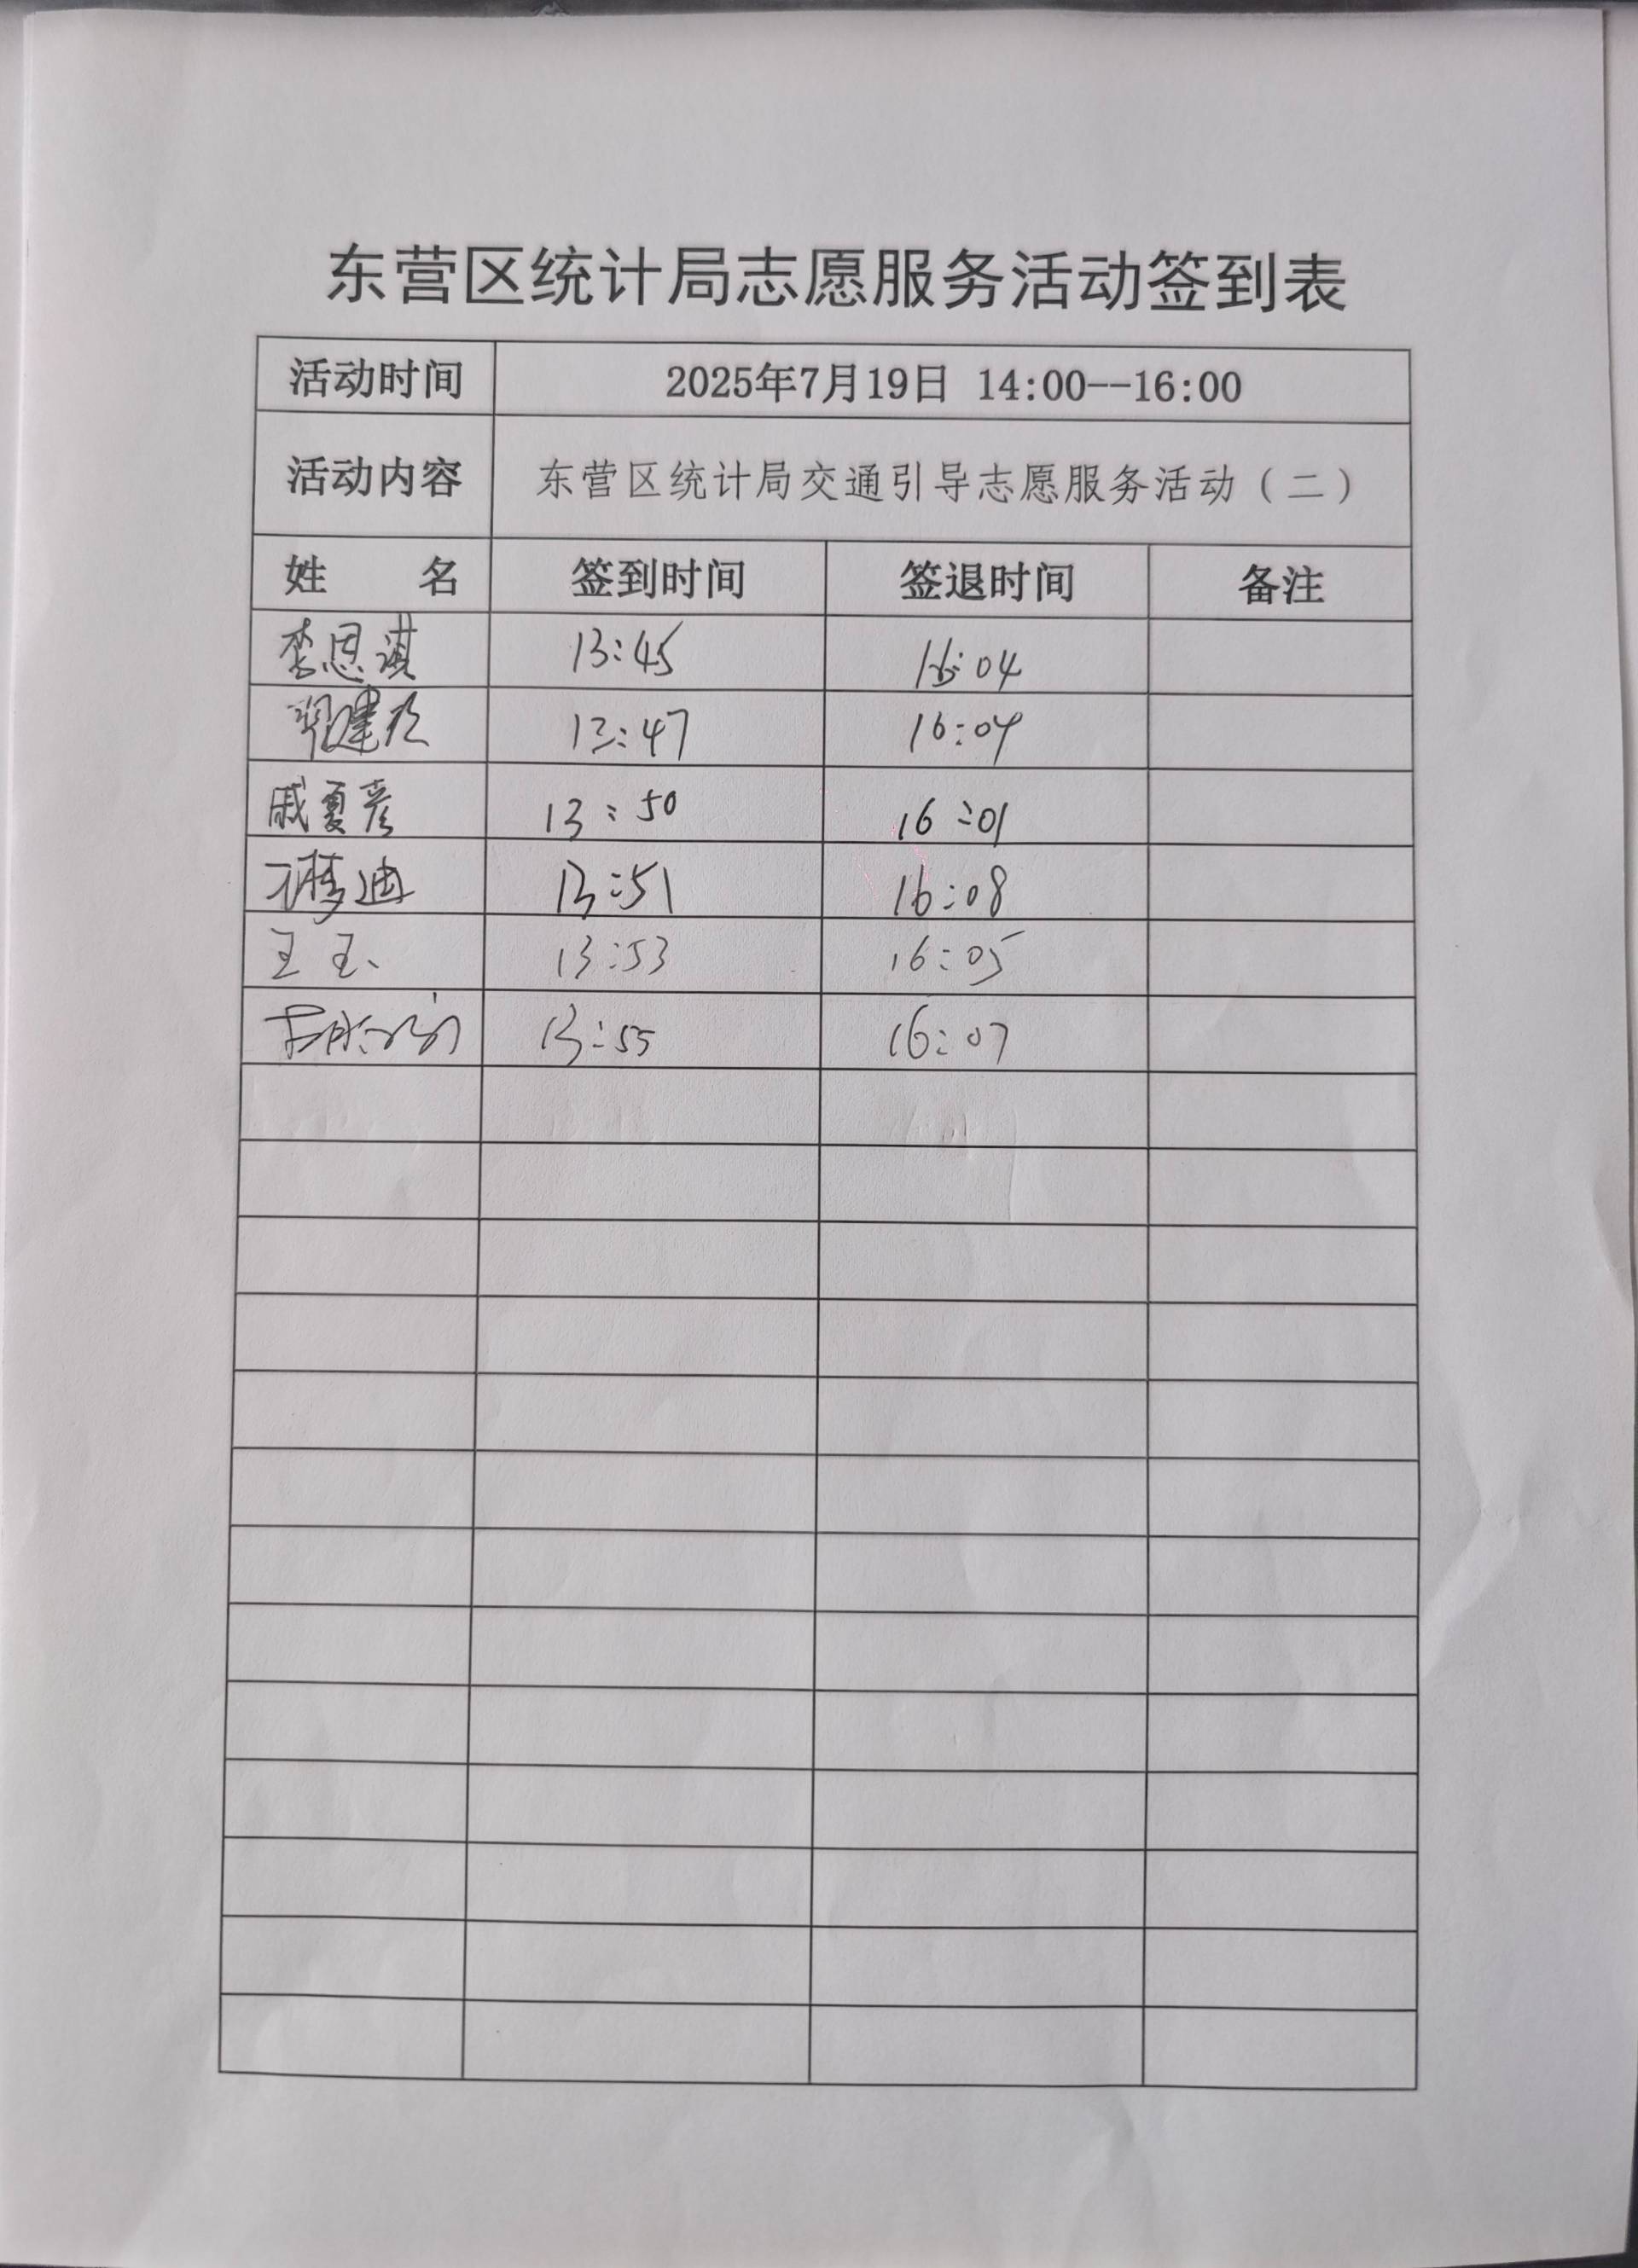 东营区统计局志愿服务活动签到表
活动时间 2025年7月19日 14:00--16:00
活动内容 东营区统计局交通引导志愿服务活动（二）
姓 名 签到时间 签退时间 备注
李恩淇 13:45 16:04
13:47 16:04
戚夏彦 13:50 16:01
梦迪 13:51 16:08
王玉 13:53 16:05
13:55 16:07